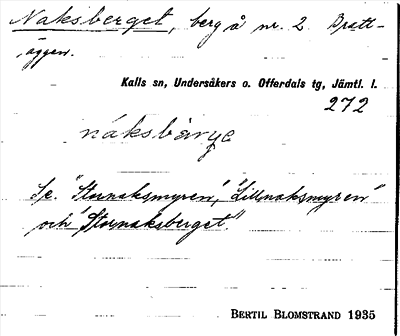 Naksberget, berg å nr. 2 Bratt-
äggen.
Kalls sn, Undersåkers o. Offerdals tg, Jämtl. l.
272
náksbàrγe
Se "Stornaksmyren", "Lillnaksmyren"
och "Stornaksberget."
BERTIL BLOMSTRAND 1935